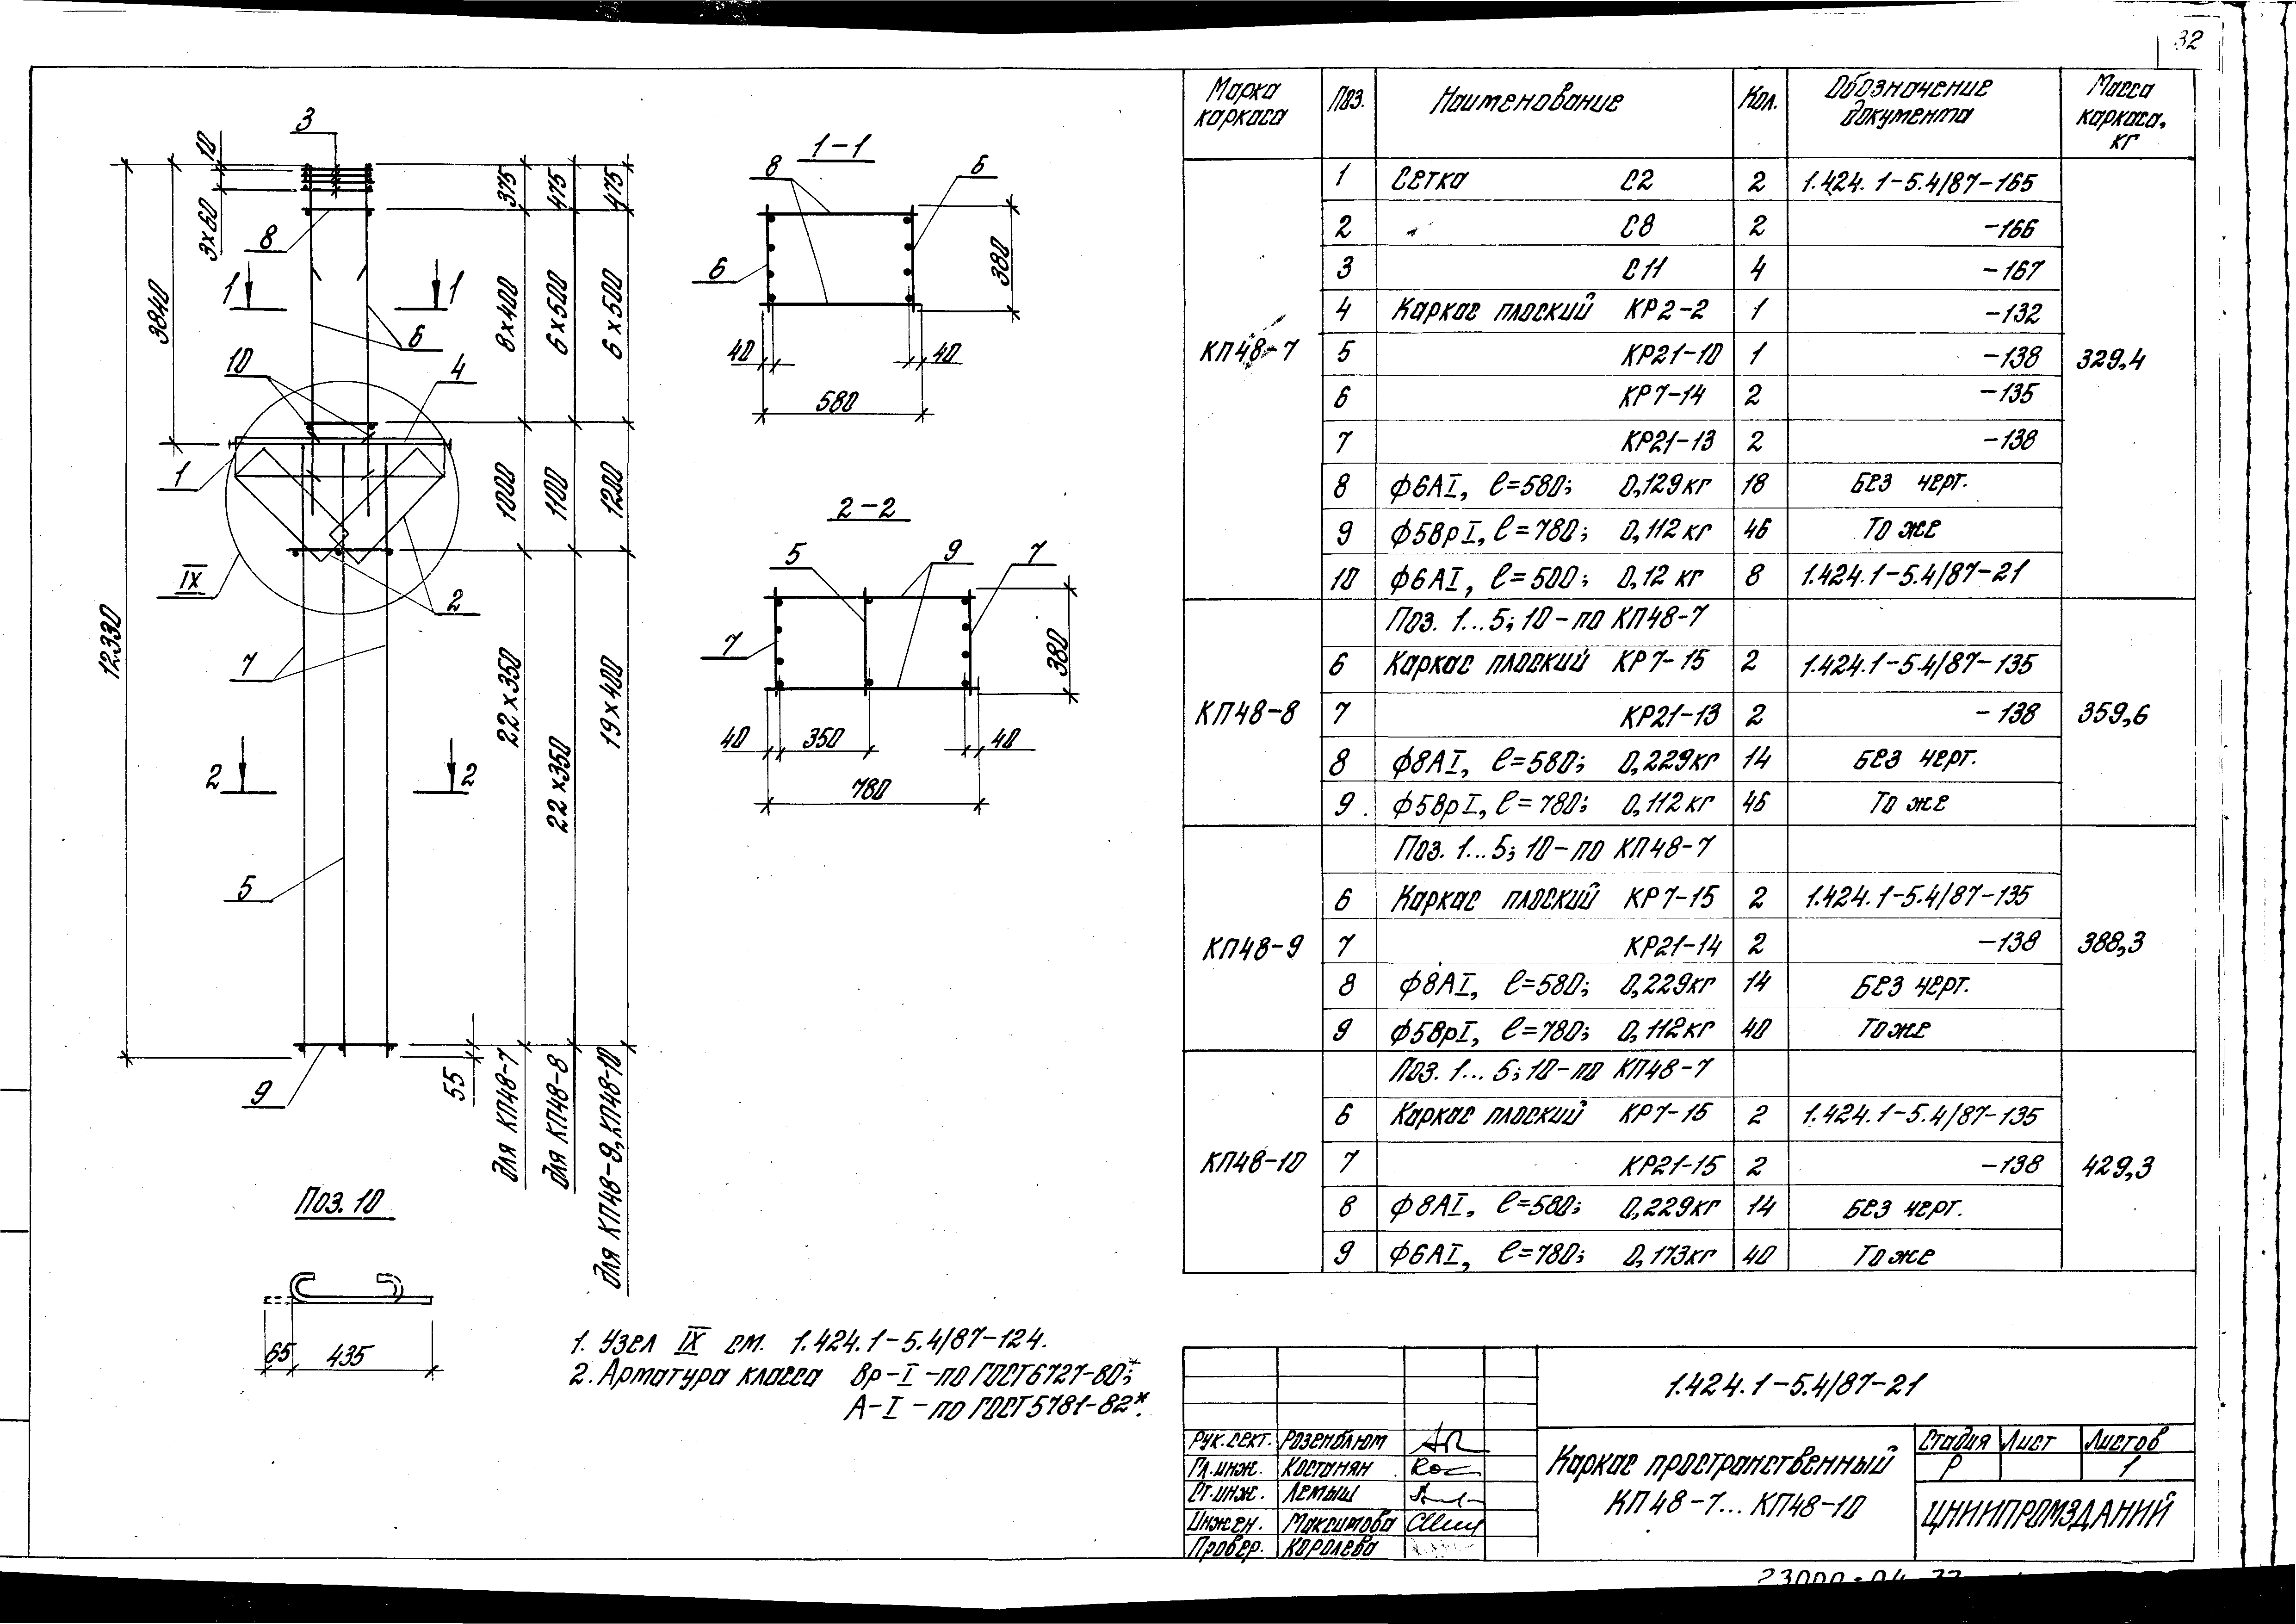 32
3
10
3×60
8
3840
12330
1
1
6
10
4
1
IX
2
7
2
2
5
9
55
375
8×400
1000
22×350
для КП48-7
475
6×500
1100
22×350
для КП48-8
475
6×500
1200
19×400
для КП48-9, КП48-10
1-1
8
6
6
380
40
40
580
2-2
5
9
7
7
380
40
350
40
780
Поз. 10
65
435
1. Узел IX см. 1.424.1-5.4/87-124.
2. Арматура класса Вр-I - по ГОСТ 6727-80*;
А-I - по ГОСТ 5781-82*.
Марка каркаса Поз. Наименование Кол. Обозначение документа Масса каркаса, кг
КП48-7 329,4
1 Сетка С2 2 1.424.1-5.4/87-165
2 " С8 2 -166
3 С11 4 -167
4 Каркас плоский КР2-2 1 -132
5 КР21-10 1 -138
6 КР7-14 2 -135
7 КР21-13 2 -138
8 ф6АI, ℓ=580; 0,129кг 18 Без черт.
9 ф5ВрI, ℓ=780; 0,112кг 46 То же
10 ф6АI, ℓ=500; 0,12 кг 8 1.424.1-5.4/87-21
Поз. 1...5; 10 - по КП48-7
КП48-8 359,6
6 Каркас плоский КР7-15 2 1.424.1-5.4/87-135
7 КР21-13 2 -138
8 ф8АI, ℓ=580; 0,229кг 14 Без черт.
9 ф5ВрI, ℓ=780; 0,112кг 46 То же
Поз. 1...5; 10 - по КП48-7
КП48-9 388,3
6 Каркас плоский КР7-15 2 1.424.1-5.4/87-135
7 КР21-14 2 -138
8 ф8АI, ℓ=580; 0,229кг 14 Без черт.
9 ф5ВрI, ℓ=780; 0,112кг 40 То же
Поз. 1...5; 10 - по КП48-7
КП48-10 429,3
6 Каркас плоский КР7-15 2 1.424.1-5.4/87-135
7 КР21-15 2 -138
8 ф8АI, ℓ=580; 0,229кг 14 Без черт.
9 ф6АI, ℓ=780; 0,173кг 40 То же
1.424.1-5.4/87-21
Рук. сект. Розенблюм
Гл. инж. Костанян
Ст. инж. Лемыш
Инжен. Максимова
Провер. Королева
Каркас пространственный
КП48-7...КП48-10
Стадия Лист Листов
Р 1
ЦНИИПРОМЗДАНИЙ